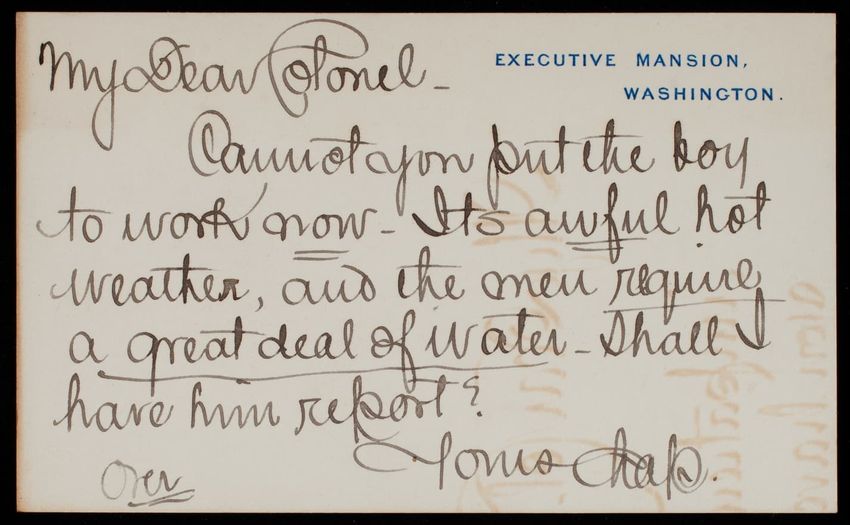 EXECUTIVE MANSION,
WASHINGTON.
My Dear Colonel -
Cannot you put the boy
to work now - Its awful hot
weather, and the men require
a great deal of water - Shall I
have him report?
Yours Chap.
Over